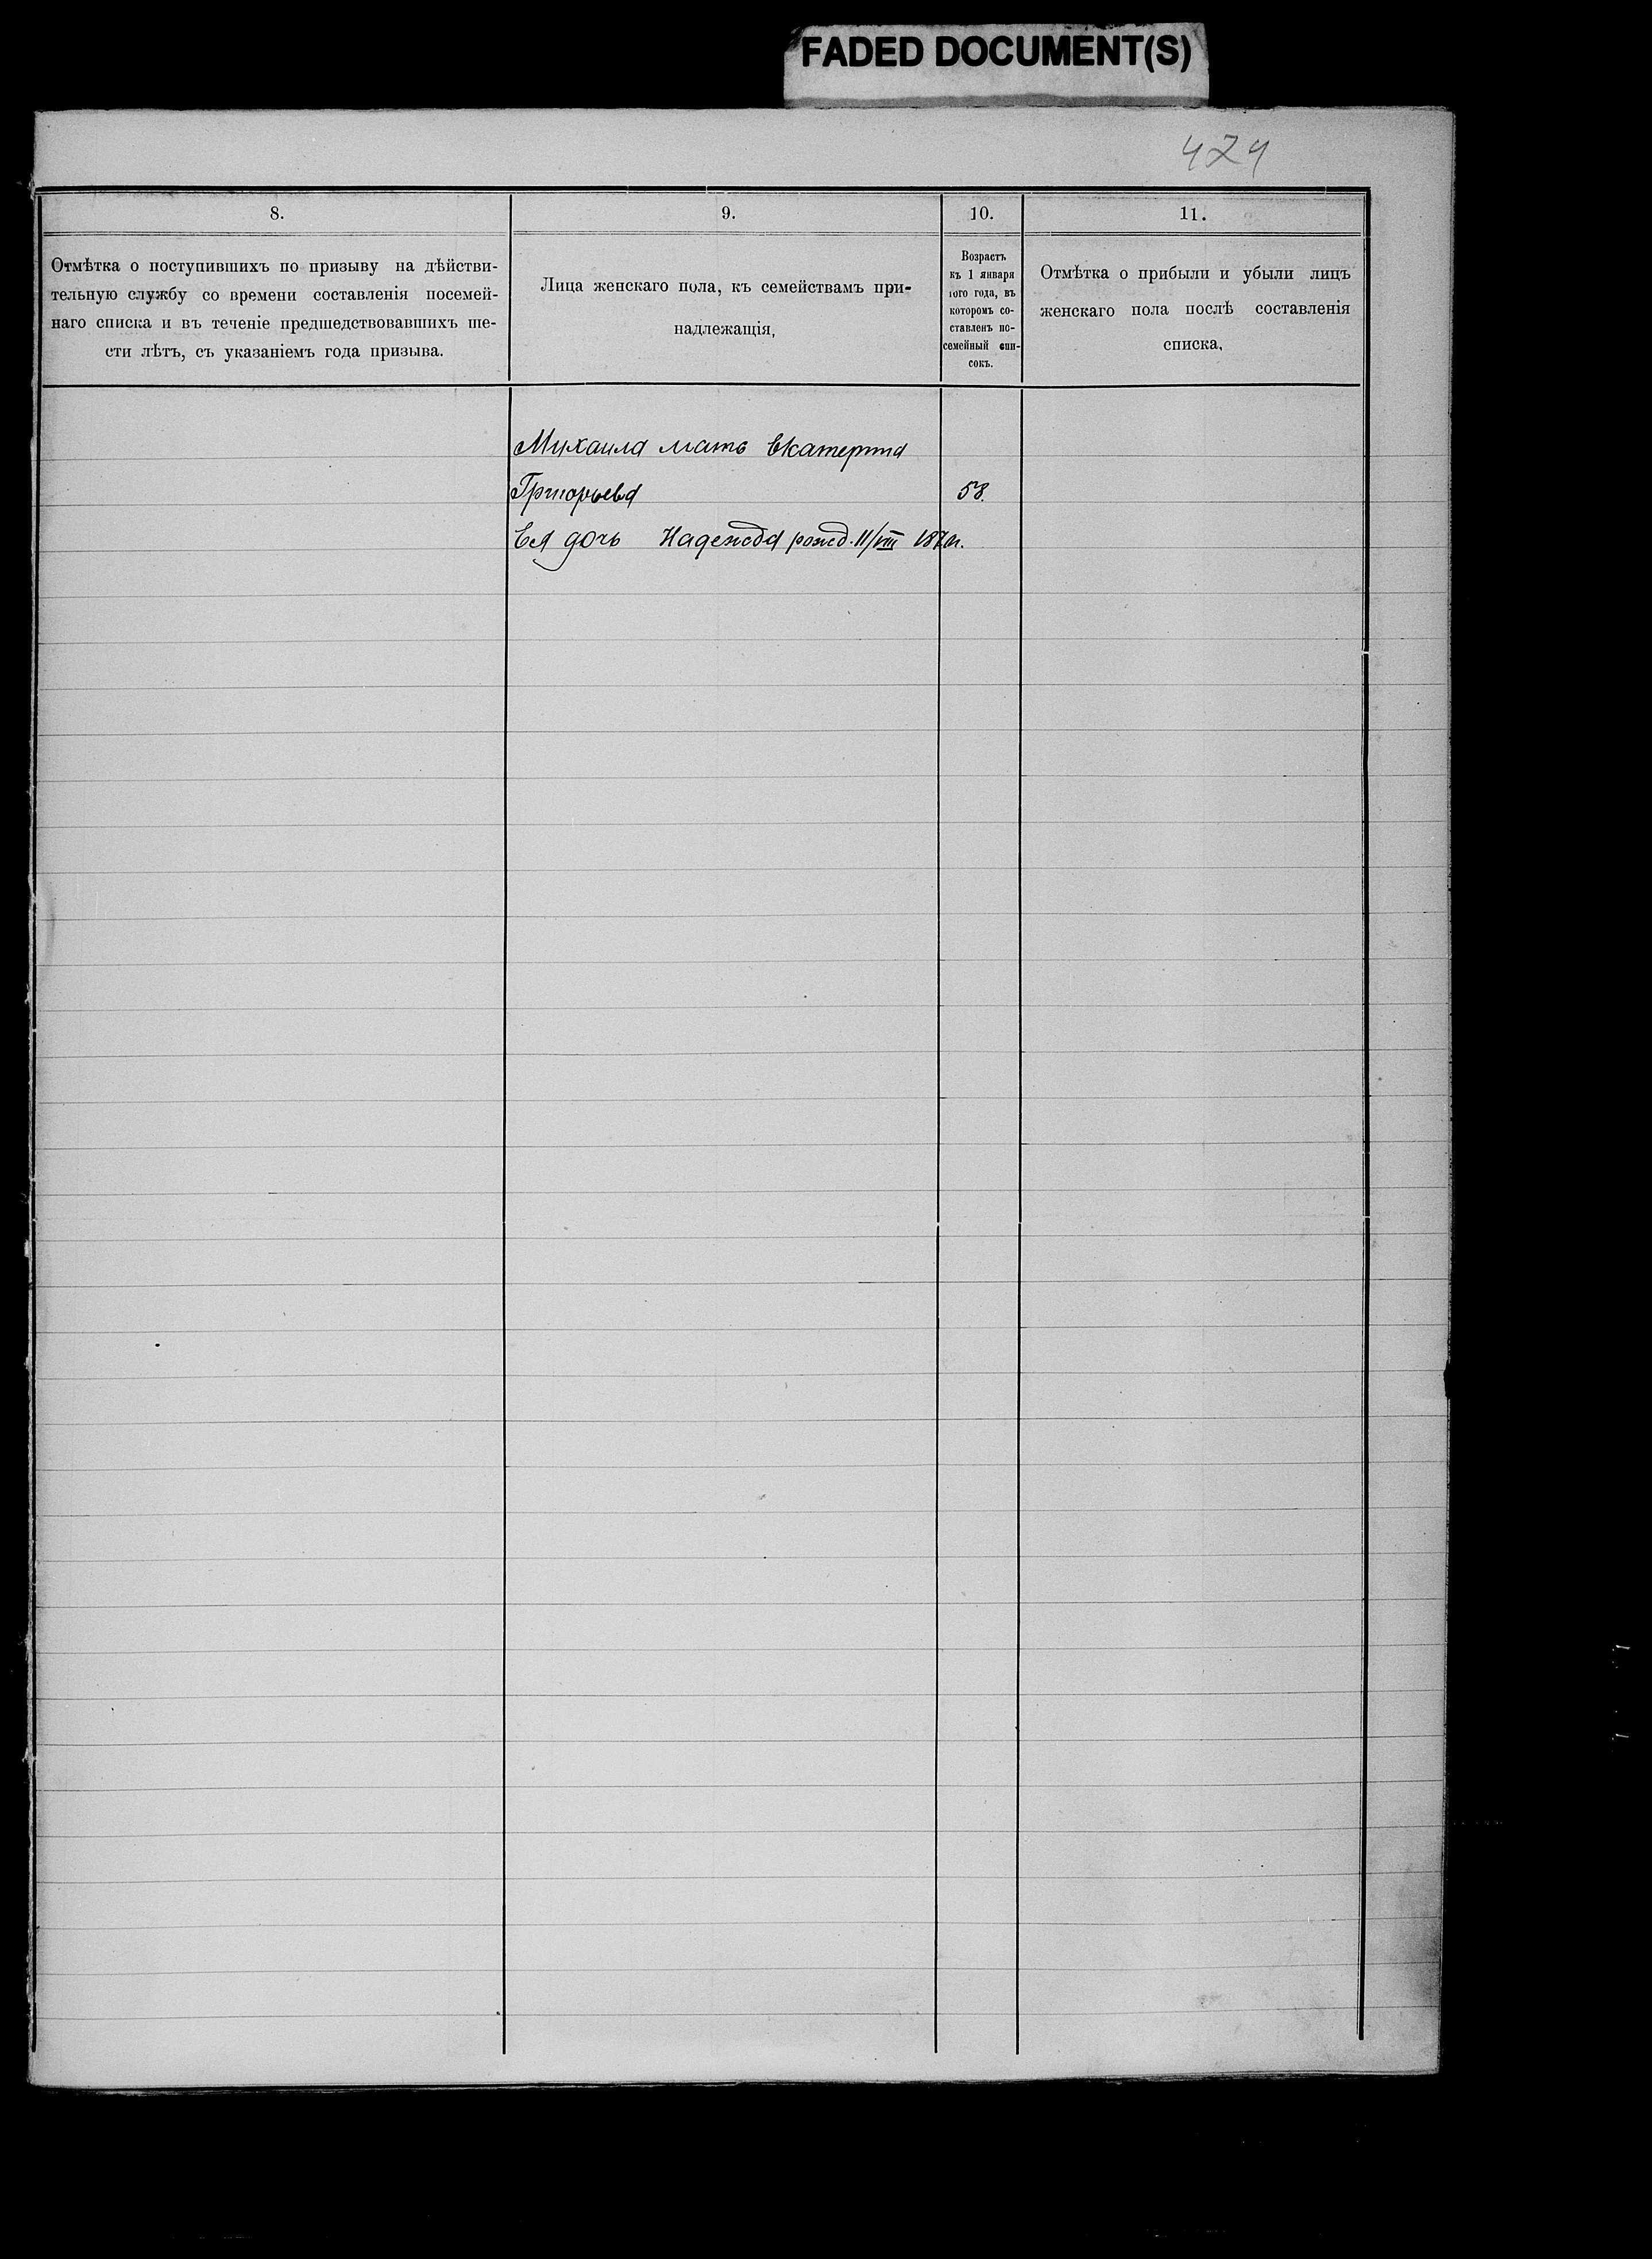 FADED DOCUMENT(S)
424
8.
Отмѣтка о поступившихъ по призыву на дѣйстви-
тельную службу со времени составленія посемей-
наго списка и въ теченіе предшедствовавшихъ ше-
сти лѣтъ, съ указаніемъ года призыва.
9.
Лица женскаго пола, къ семействамъ при-
надлежащія,
10.
Возрастъ
къ 1 января
того года, въ
которомъ со-
ставленъ по-
семейный спи-
сокъ.
11.
Отмѣтка о прибыли и убыли лицъ
женскаго пола послѣ составленія
списка,
Михаила мать Екатерина
Григорьева 58.
Ея дочь Надежда рожд. 11/VIII